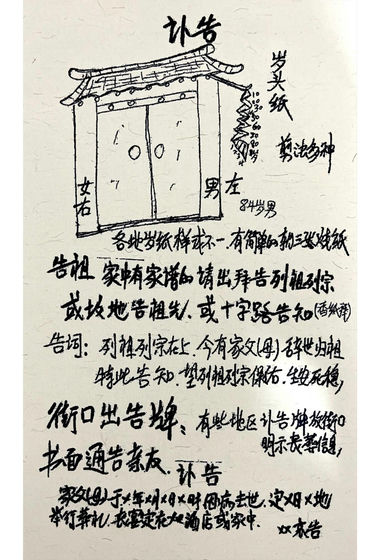 讣告
岁头纸
10
20
30
剪法多种
女右
男左
84岁男
各地岁纸样式不一.有简单的朝三张烧纸
告祖 家中有家谱的请出拜告列祖列宗
或坟地告祖先.或十字路告知(香纸拜)
告词:列祖列宗在上.今有家父(母)辞世归祖
特此告知.望列祖列宗保佑.生安死稳,
街口出告牌: 有些地区讣告牌放街口
明示丧葬信息,
书面通告亲友. 讣告
家父(母)于×年×月×日×时因病去世.定×日×地
举行葬礼.丧宴定在××酒店或家中.
××哀告